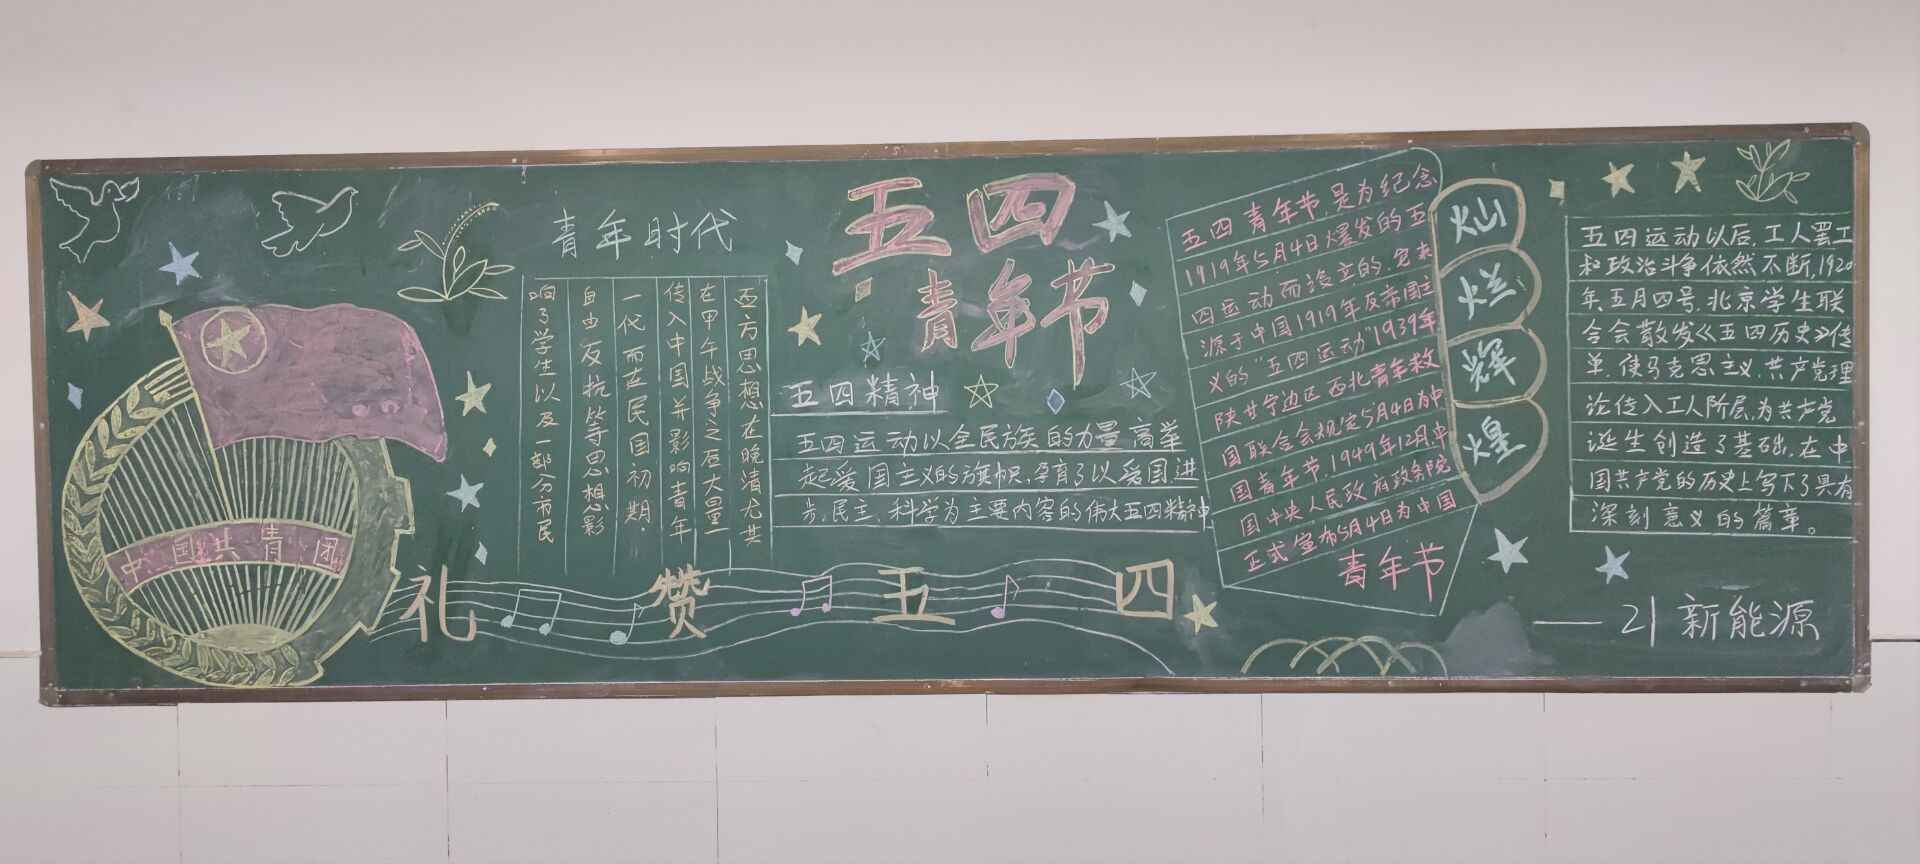 中国共青团
青年时代
西方思想在晚清尤其
在甲午战争之后大量
传入中国并影响青年
一代而在民国初期
自由反抗等思想影
响了学生以及一部分市民
五四
青年节
五四精神
五四运动以全民族的力量高举
起爱国主义的旗帜,孕育了以爱国,进
步,民主,科学为主要内容的伟大五四精神
礼赞五四
五四青年节,是为纪念
1919年5月4日爆发的五
四运动而设立的,它来
源于中国1919年反帝国主
义的"五四运动"1939年
陕甘宁边区西北青年救
国联合会规定5月4日为中
国青年节,1949年12月中
国中央人民政府政务院
正式宣布5月4日为中国
青年节
灿
烂
辉
煌
五四运动以后,工人罢工
和政治斗争依然不断,1920
年,五月四号,北京学生联
合会散发《五四历史》传
单,使马克思主义,共产党理
论传入工人阶层,为共产党
诞生创造了基础,在中
国共产党的历史上写下了具有
深刻意义的篇章。
——21新能源